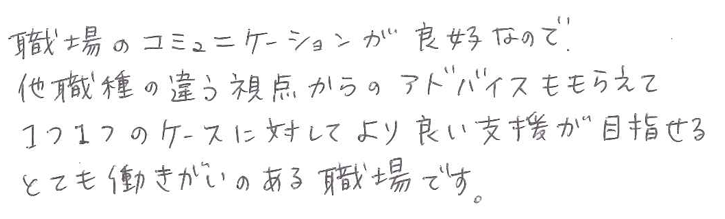 職場のコミュニケーションが良好なので、
他職種の違う視点からのアドバイスももらえて
1つ1つのケースに対してより良い支援が目指せる
とても働きがいのある職場です。